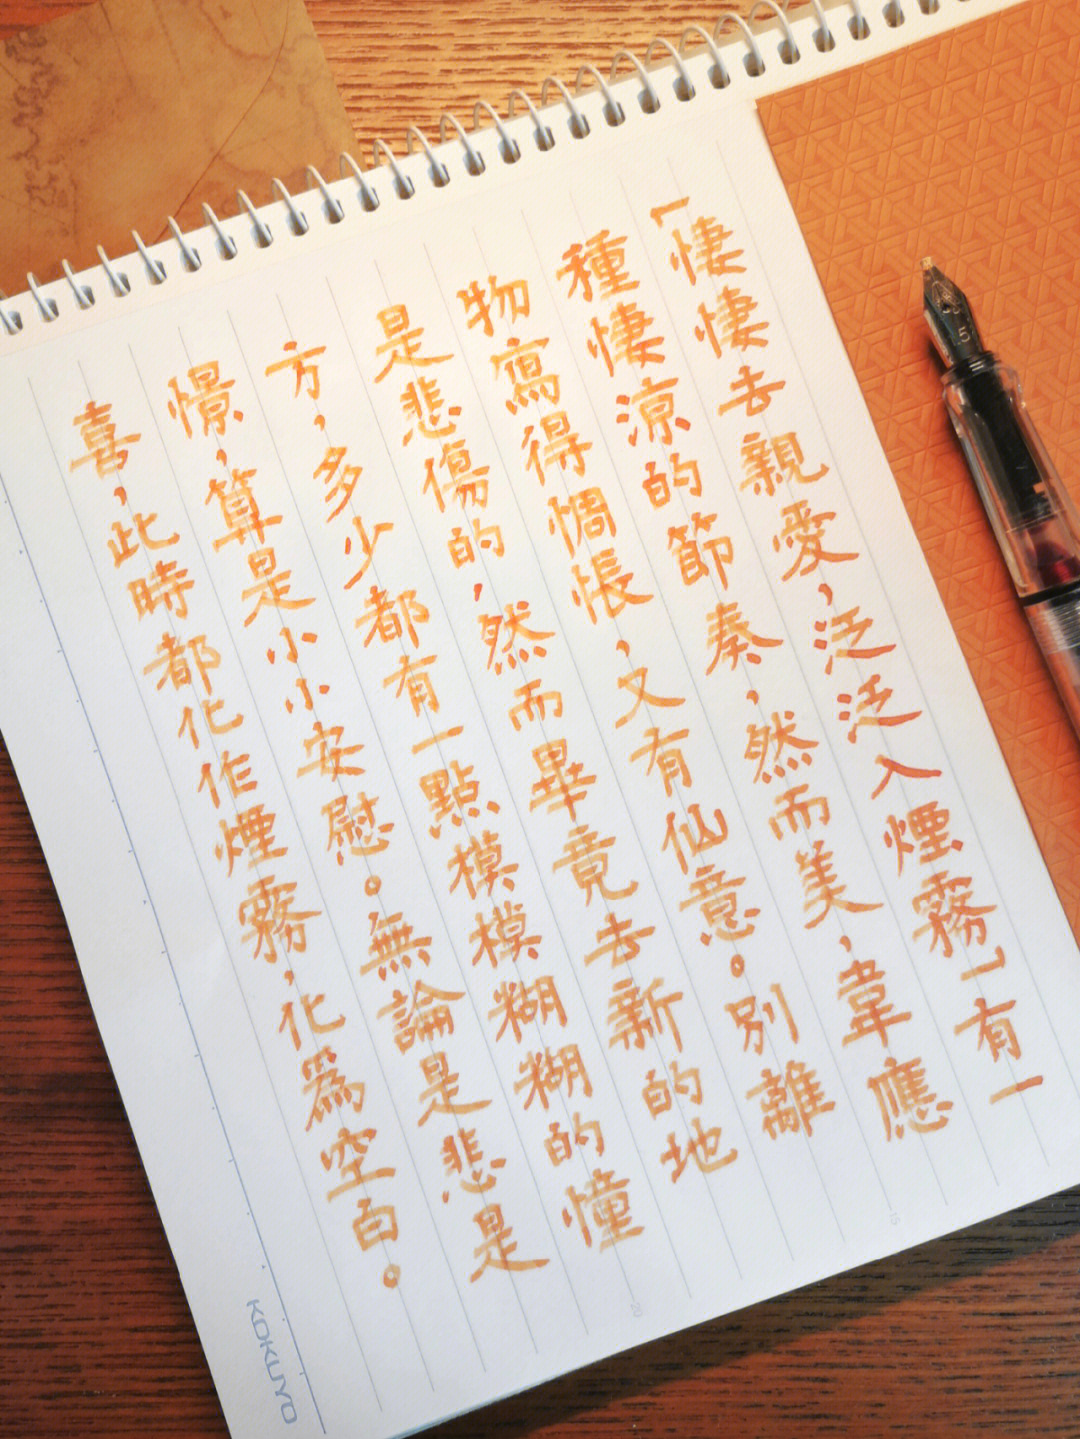 「悽悽去親愛，泛泛入煙霧」有一
種悽涼的節奏，然而美，韋應
物寫得惆悵，又有仙意。別離
是悲傷的，然而畢竟去新的地
方，多少都有一點模模糊糊的憧
憬，算是小小安慰。無論是悲是
喜，此時都化作煙霧，化爲空白。
KOKUYO
15
20
5